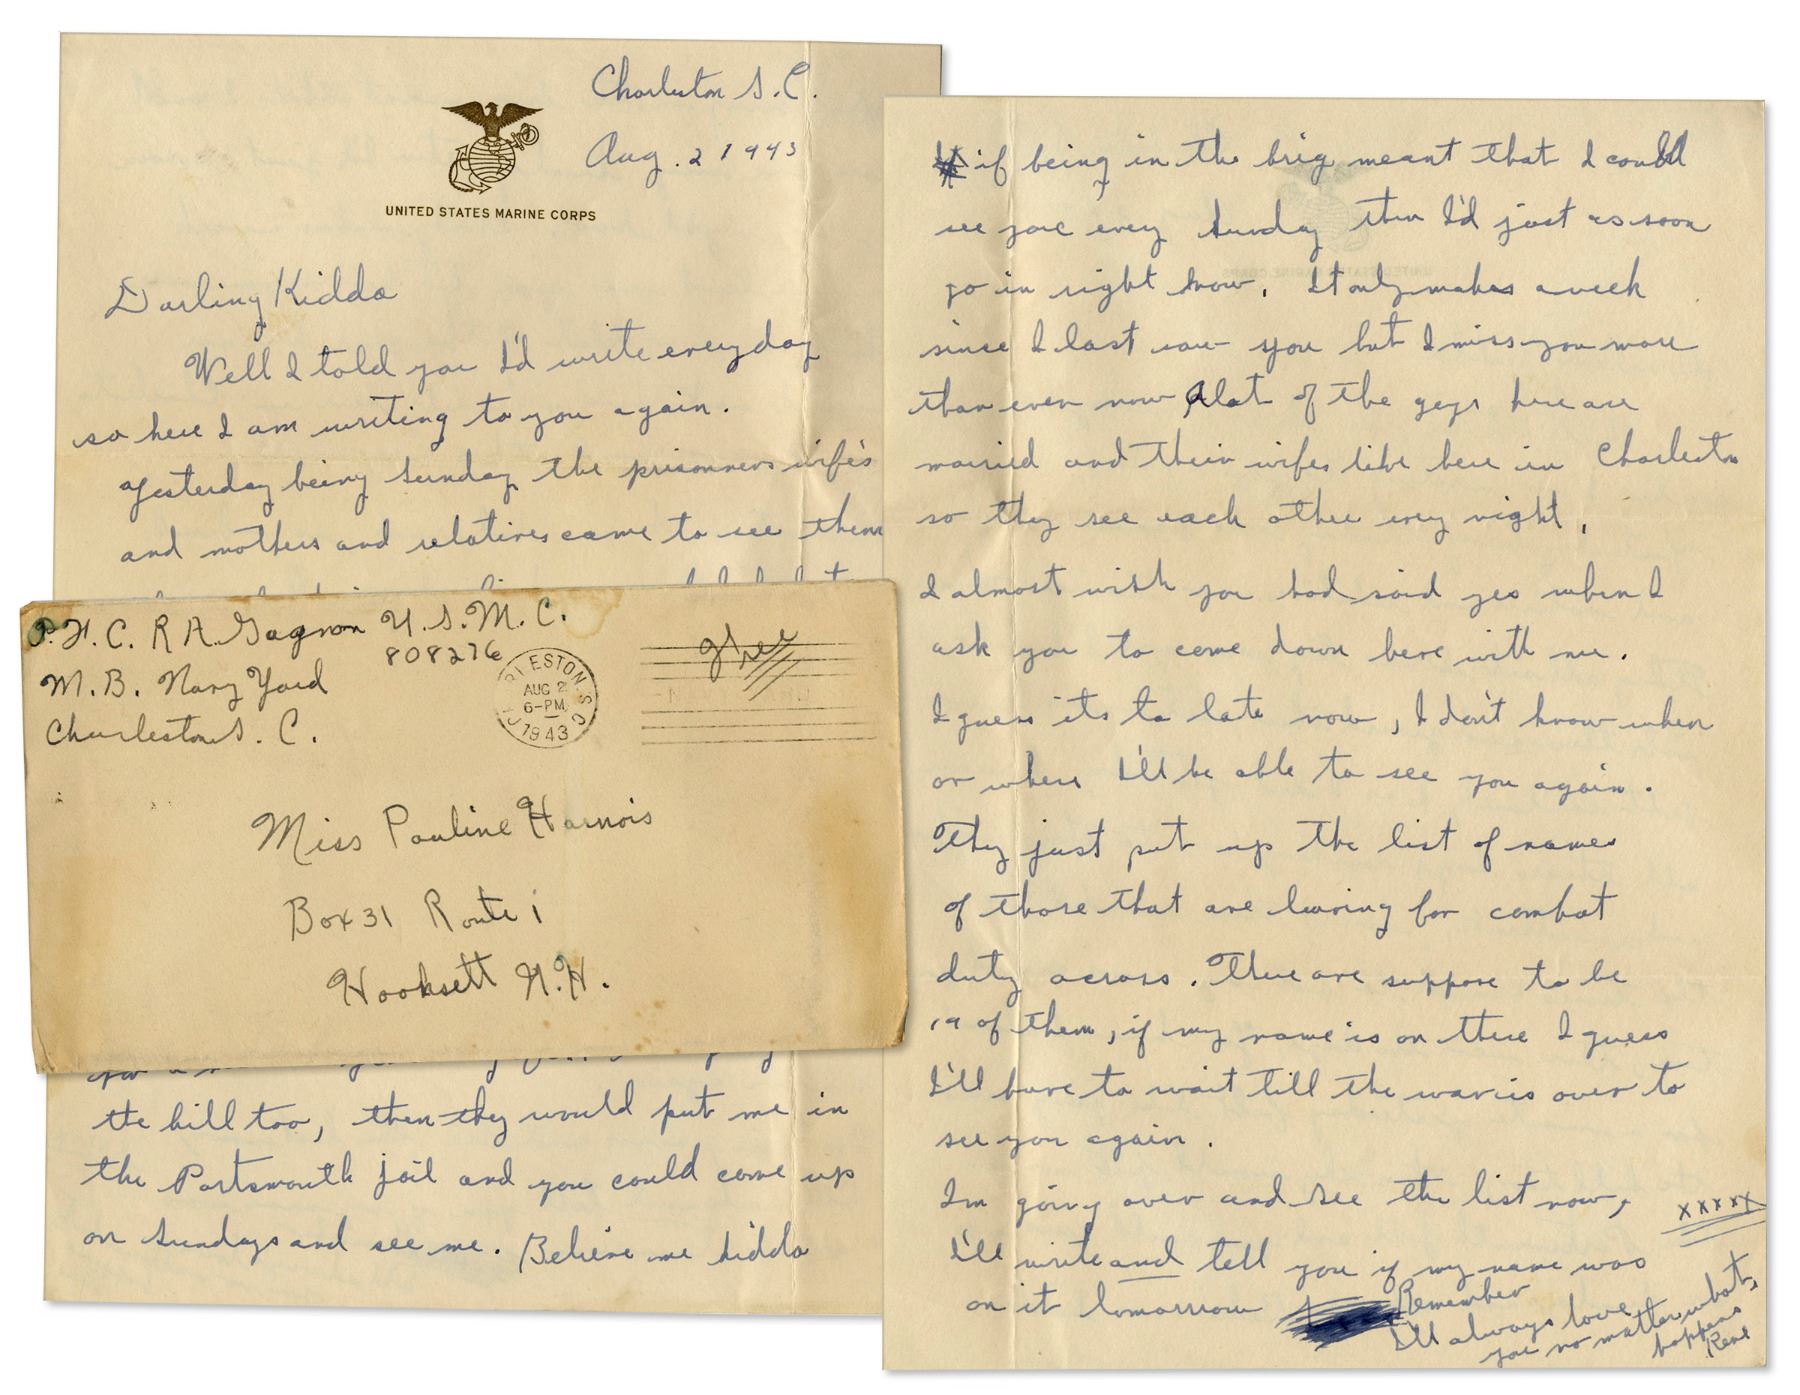 Charleston S.C.
Aug. 2 1943
UNITED STATES MARINE CORPS
Darling Kiddo
Well I told you I'd write everyday
so here I am writing to you again.
Yesterday being Sunday the prisonners wife's
and mothers and relatives came to see them
P.F.C. R A. Gagnon U.S.M.C.
808276
M.B. Navy Yard
Charleston S. C.
free
AUG 2
6-PM
1943
Miss Pauline Harnois
Box 31 Route 1
Hooksett N.H.
the hill too, then they would put me in
the Portsmouth jail and you could come up
on Sundays and see me. Believe me kiddo
if being in the brig meant that I could
see you every Sunday then I'd just as soon
go in right now. It only makes a week
since I last saw you but I miss you more
than ever now Alot of the guys here are
married and their wifes live here in Charleston
so they see each other every night.
I almost wish you had said yes when I
ask you to come down here with me.
I guess its to late now, I don't know when
or where I'll be able to see you again.
They just put up the list of names
of those that are leaving for combat
duty across. There are suppose to be
19 of them, if my name is on there I guess
I'll have to wait till the war is over to
see you again.
Im going over and see the list now,
xxxxx
I'll write and tell you if my name was
on it tomorrow
Remember
I'll always love
you no matter what
happens
Rene